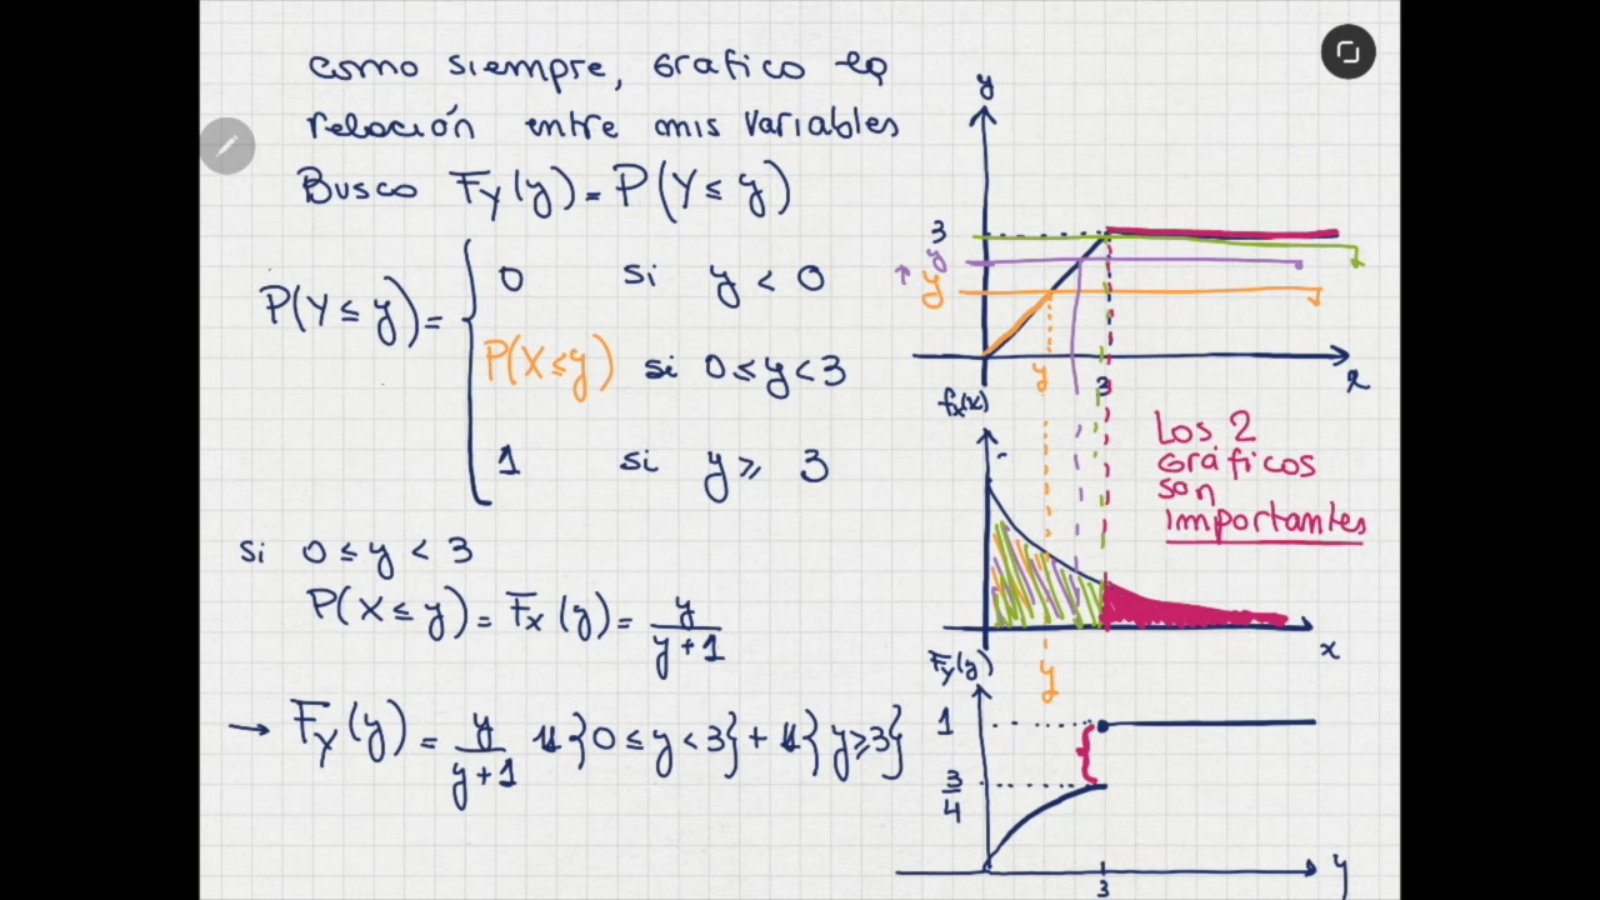 como siempre, grafico la
relación entre mis variables
Busco F_Y(y) = P(Y ≤ y)
P(Y ≤ y) = { 0 si y < 0
P(X ≤ y) si 0 ≤ y < 3
1 si y ≥ 3
si 0 ≤ y < 3
P(X ≤ y) = F_X(y) = y/(y+1)
→ F_Y(y) = y/(y+1) 1{0 ≤ y < 3} + 1{y ≥ 3}
y
3
y
y
y
3
x
f_X(x)
Los 2
gráficos
son
importantes
x
y
F_Y(y)
1
3/4
3
y